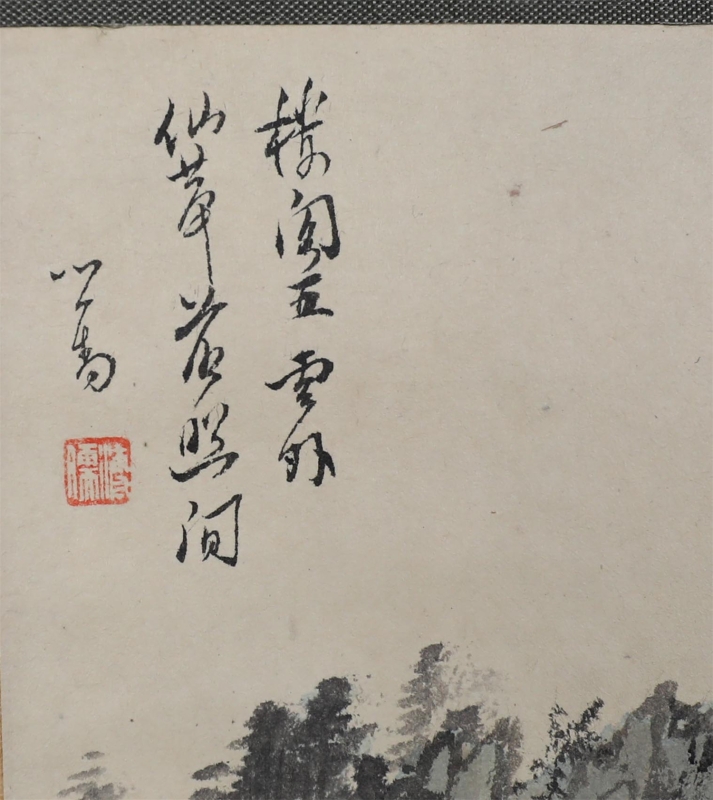 樓閣五雲外
仙華落照間
心畬
溥儒